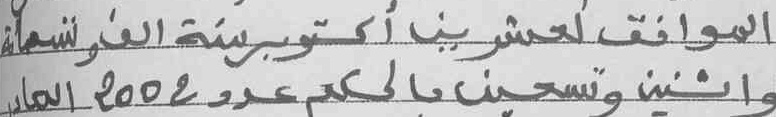 الموافق لعشرين أكتوبر سنة ألف وتسعمائة
واثنين وتسعين بالحكم عدد 2002 الصادر